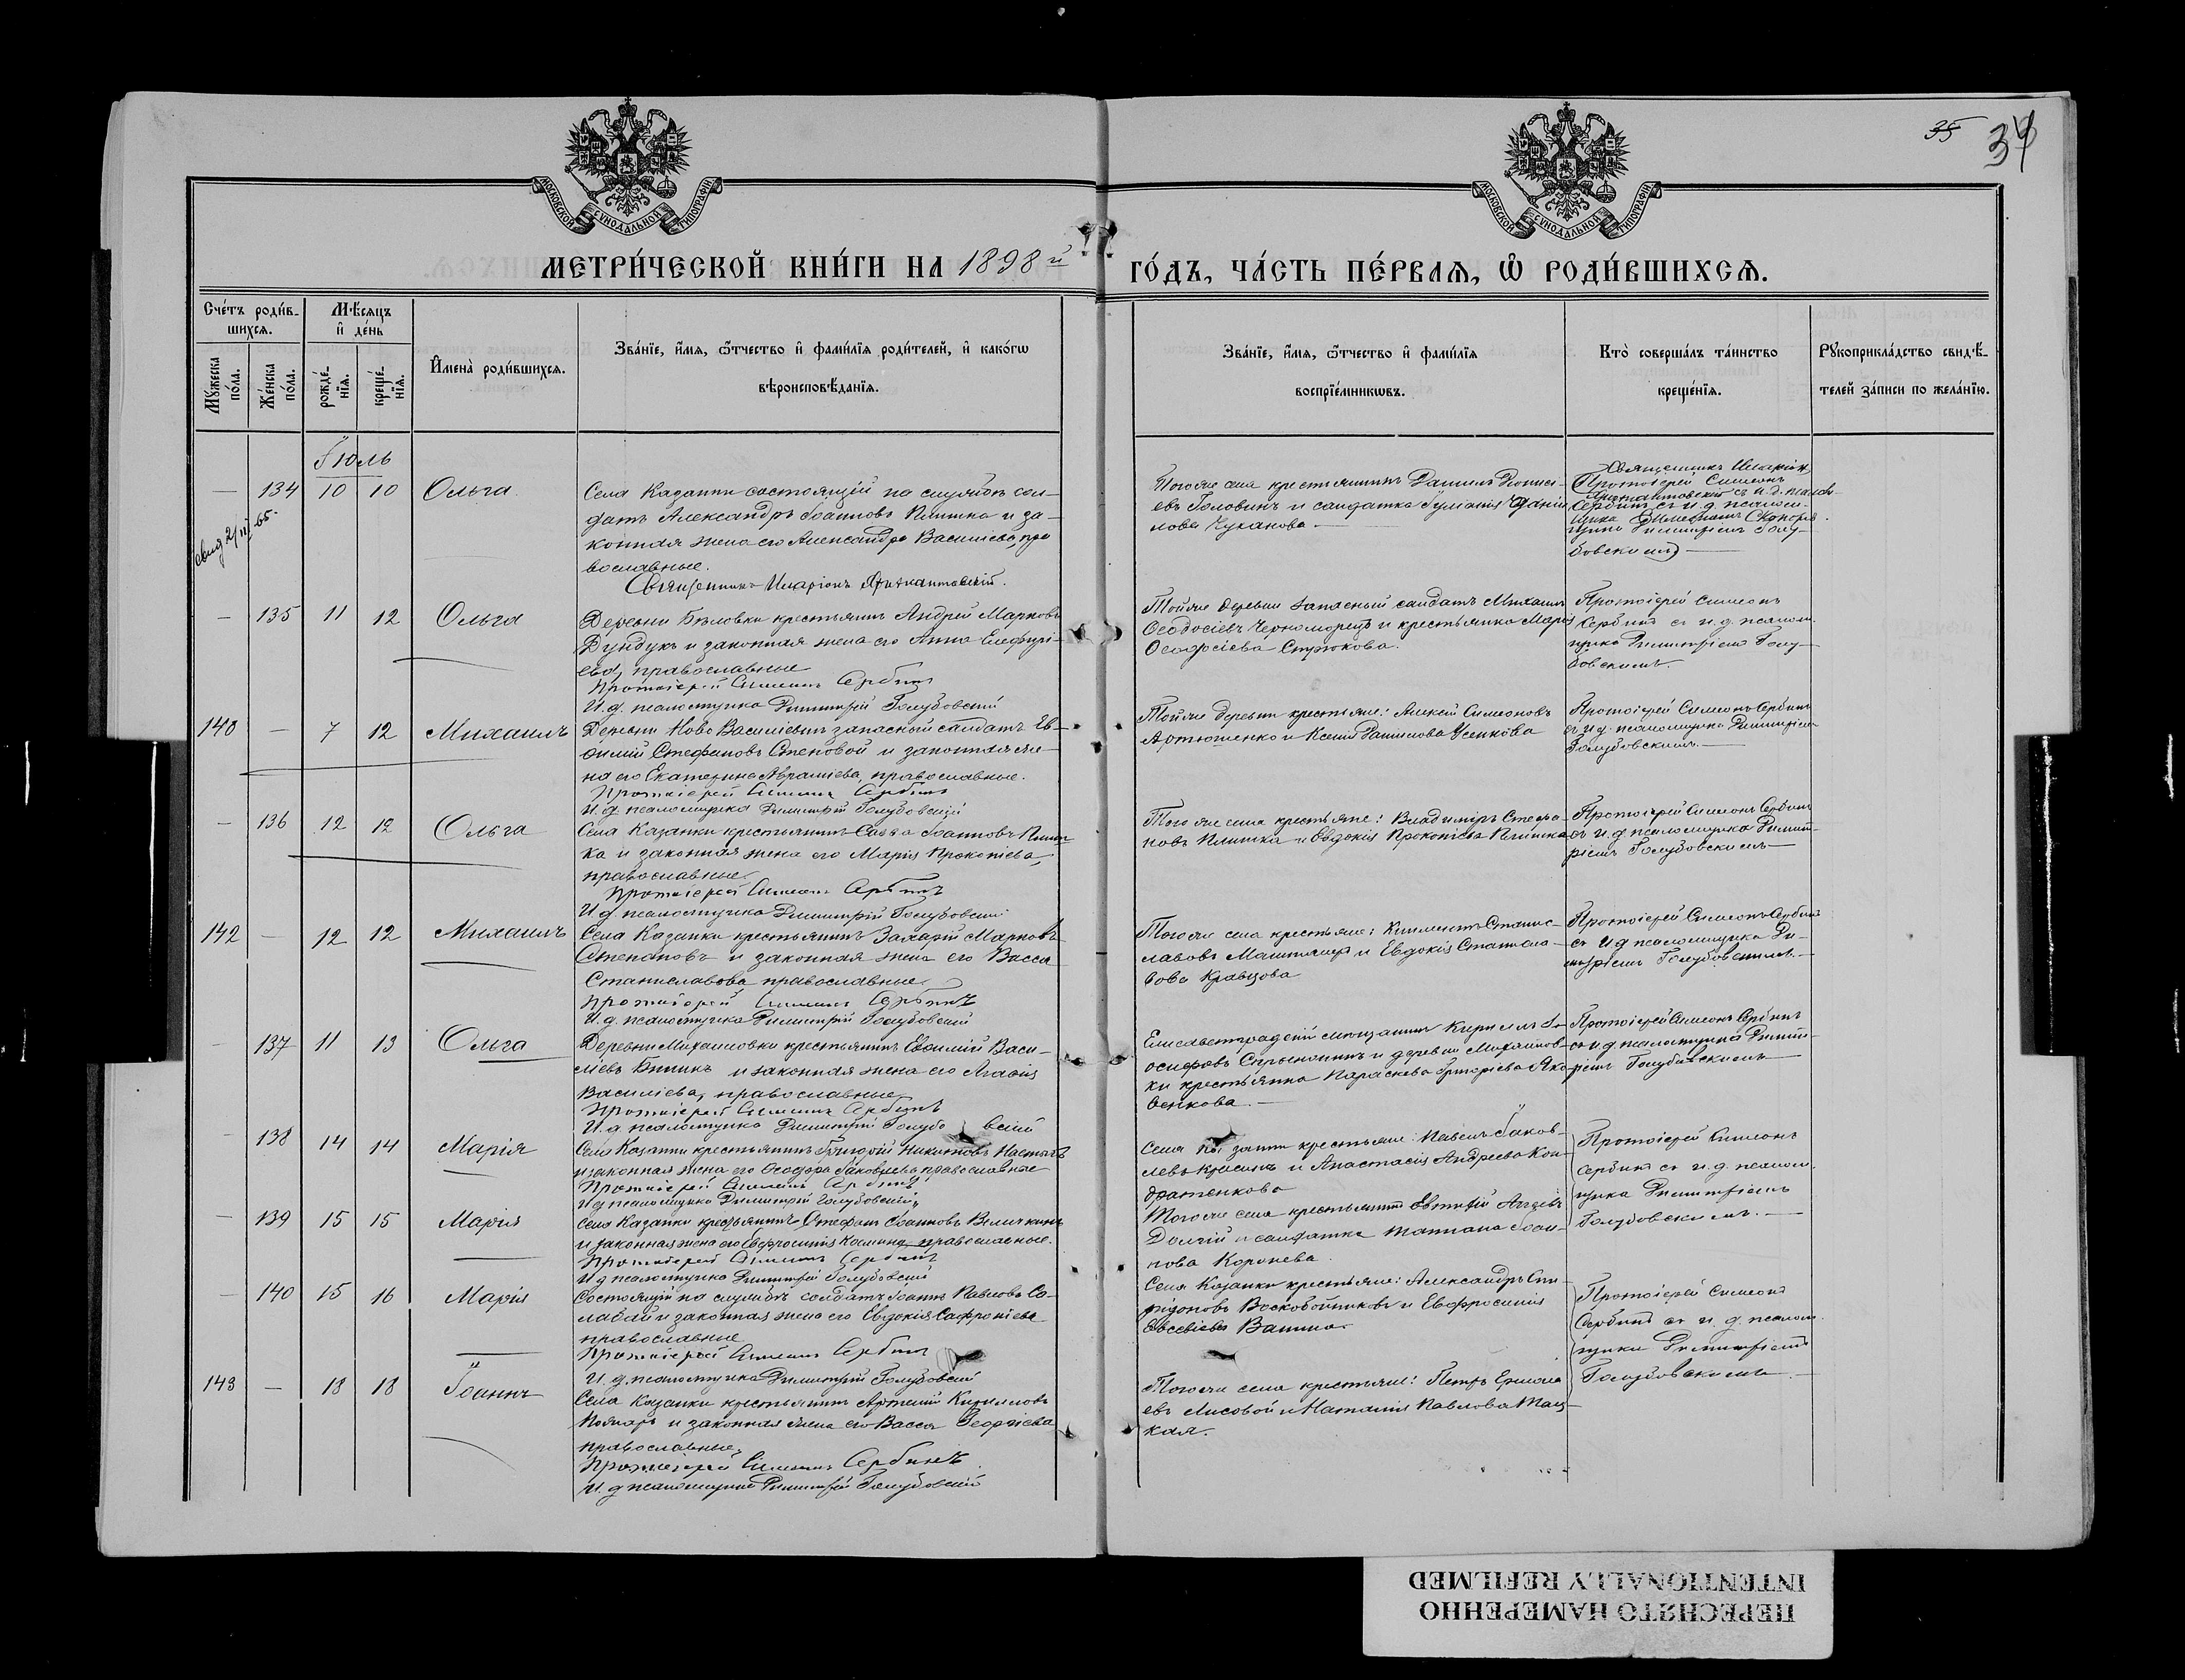 35 34
МОСКОВСКОЙ СѴНОДАЛЬНОЙ ТИПОГРАФІИ
МОСКОВСКОЙ СѴНОДАЛЬНОЙ ТИПОГРАФІИ
МЕТРИ́ЧЕСКОЙ КНИ́ГИ НА 1898 й
ГО́ДЪ, ЧА́СТЬ ПЕ́РВАѦ, Ѡ҆ РОДИ́ВШИХСѦ.
Сче́тъ роди́в-
шихсѧ.
Мꙋ́жеска по́ла.
Же́нска по́ла.
Мѣ́сѧцъ
и҆ де́нь
рожде́-
нїѧ.
креще́-
нїѧ.
И҆мена̀ роди́вшихсѧ.
Зва́нїе, и҆́мѧ, ѻ҆́тчество и҆ фами́лїѧ роди́телей, и҆ како́гѡ
вѣроисповѣ́данїѧ.
Зва́нїе, и҆́мѧ, ѻ҆́тчество и҆ фами́лїѧ
воспрїе́мникѡвъ.
Кто̀ соверша́лъ та́инство
креще́нїѧ.
Рꙋкоприкла́дство свидѣ́-
телей за́писи по жела́нїю.
Іюль
— 134 10 10 Ольга
Села Казанки состоящій на службѣ сол-
датъ Александръ Іоанновъ Плитка и за-
конная жена его Александра Василіева, пра
вославные.
Священникъ Иларіонъ
Того же села крестьянинъ Даніилъ Діонисі-
евъ Головинъ и солдатка Іуліанія Даніи
лова Чуканова
Священникъ Иларіон
Протоіерей Симеонъ
Сербинъ съ и.д. псалом-
щика Димитріемъ Голу-
бовскимъ
— 135 11 12 Ольга
Деревни Бѣловки крестьянинъ Андрей Марковъ
Дундукъ и законная жена его Анна Елевѳері-
ева, православные
Протоіерей Симеонъ Сербинъ
И.д. псаломщика Димитрій Голубовскій
Той же деревни запасный солдатъ Михаилъ
Ѳеодосіевъ Черноморецъ и крестьянка Марія
Ѳеодосіева Стрюкова.
Протоіерей Симеонъ
Сербинъ съ и.д. псалом-
щика Димитріемъ Голу-
бовскимъ.
140 — 7 12 Михаилъ
Деревни Ново Василіевки запасный солдатъ Ев-
ѳимій Стефановъ Степовой и законная же-
на его Екатерина Авраміева, православные.
Протоіерей Симеонъ Сербинъ
И.д. псаломщика Димитрій Голубовскій
Той же деревни крестьяне: Алексѣй Симеоновъ
Артюшенко и Ксенія Даніилова Усенкова
Протоіерей Симеонъ Сербинъ
съ и.д. псаломщика Димитріемъ
Голубовскимъ.
— 136 12 12 Ольга
Села Казанки крестьянинъ Савва Іоанновъ Плит-
ка и законная жена его Марія Прокопіева,
православные
Протоіерей Симеонъ Сербинъ
И.д. псаломщика Димитрій Голубовскій
Того же села крестьяне: Владиміръ Стефа-
новъ Плитка и Евдокія Прокопіева Плитка
Протоіерей Симеонъ Сербинъ
съ и.д. псаломщика Димит-
ріемъ Голубовскимъ
142 — 12 12 Михаилъ
Села Казанки крестьянинъ Захарій Марковъ
Степановъ и законная жена его Васса
Станиславова православные
Протоіерей Симеонъ Сербинъ
И.д. псаломщика Димитрій Голубовскій
Того же села крестьяне: Климентъ Станис-
лавовъ и Евдокія Станисла-
вова Кравцова
Протоіерей Симеонъ Сербинъ
съ и.д. псаломщика Ди-
митріемъ Голубовскимъ.
— 137 11 13 Ольга
Деревни Михайловки крестьянинъ Евѳимій Васи-
ліевъ и законная жена его Агаѳія
Василіева, православные
Протоіерей Симеонъ Сербинъ
И.д. псаломщика Димитрій Голубовскій
Елисаветградскій мѣщанинъ Кириллъ І-
осифовъ и деревни Михайлов-
ки крестьянка Параскева Григоріева Яко-
венкова.
Протоіерей Симеонъ Сербинъ
съ и.д. псаломщика Димит-
ріемъ Голубовскимъ
— 138 14 14 Марія
Села Казанки крестьянинъ Григорій Никитовъ
и законная жена его Ѳеодора Іаковлева, православные
Протоіерей Симеонъ Сербинъ
И.д. псаломщика Димитрій Голубовскій
Села Казанки крестьяне: Павелъ Іаков-
левъ и Анастасія Андреева Кон-
дратенкова
Протоіерей Симеонъ
Сербинъ съ и.д. псалом-
щика Димитріемъ
Голубовскимъ.
— 139 15 15 Марія
Села Казанки крестьянинъ Стефанъ Іоанновъ Величкинъ
и законная жена его Евфросинія Космина, православные.
Протоіерей Симеонъ Сербинъ
И.д. псаломщика Димитрій Голубовскій
Того же села крестьянинъ Евтихій
Долгій и солдатка Татіана Іоан-
нова Коронева
— 140 15 16 Марія
Состоящій на службѣ солдатъ Іоаннъ Павловъ Са-
лавай и законная жена его Евдокія Сафроніева
православные
Протоіерей Симеонъ Сербинъ
И.д. псаломщика Димитрій Голубовскій
Села Казанки крестьяне: Александръ Спи-
ридоновъ Воскобойниковъ и Евфросинія
Евсевіева
Протоіерей Симеонъ
Сербинъ съ и.д. псалом-
щика Димитріемъ
Голубовскимъ
143 — 18 18 Іоаннъ
Села Казанки крестьянинъ Артемій Кирилловъ
и законная жена его Васса Георгіева
православные.
Протоіерей Симеонъ Сербинъ
И.д. псаломщика Димитрій Голубовскій
Того же села крестьяне: Петръ Ермола
евъ Лисовой и Наталія Павлова Тац-
кая.
ПЕРЕСНЯТО НАМЕРЕННО
INTENTIONALLY REFILMED